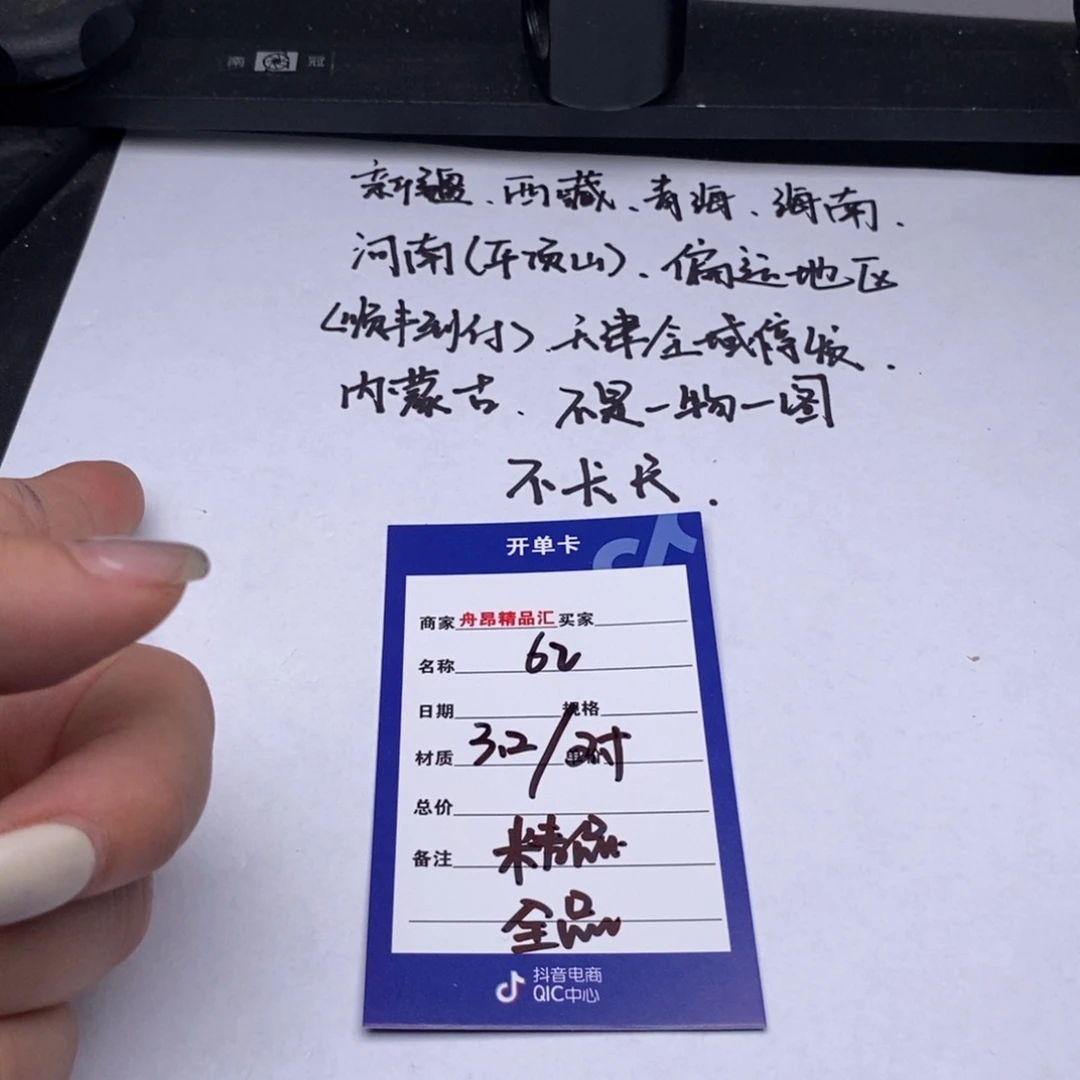 南 冠
新疆、西藏、青海、海南.
河南(平顶山)、偏远地区
(顺丰到付)、天津全域停发.
内蒙古、不是一物一图
不卡尺.
开单卡
商家 舟昂精品汇 买家
名称 62
日期 规格
材质 3.2/对
总价
备注 精品
全品
抖音电商
QIC中心